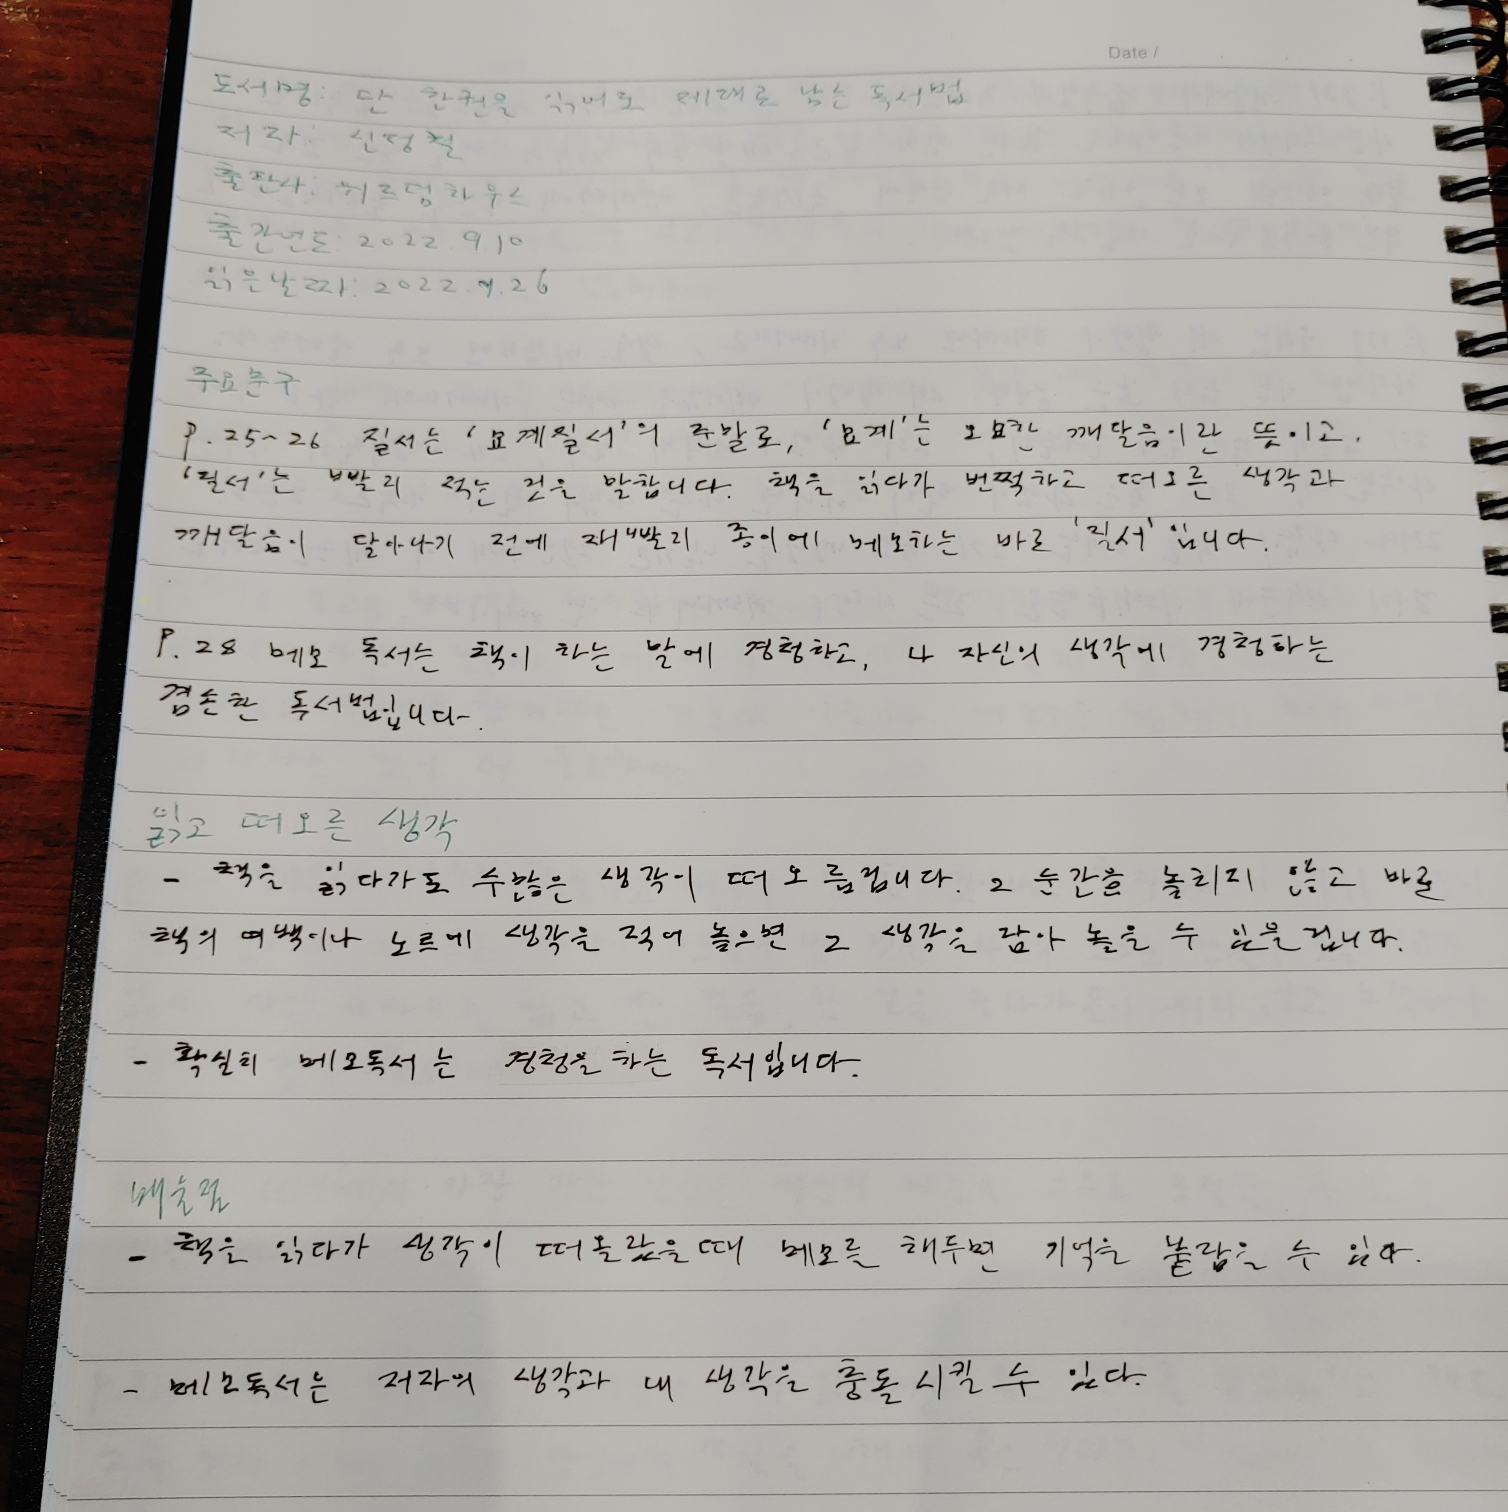 Date /
도서명: 단 한권을 읽어도 제대로 남는 독서법
저자: 신정철
출판사: 위즈덤하우스
출간연도: 2022.9.10
읽은날짜: 2022.9.26
주요문구
P.25~26 질서는 '묘계질서'의 준말로, '묘계'는 오묘한 깨달음이란 뜻이고,
'질서'는 빨리 적는 것을 말합니다. 책을 읽다가 번쩍하고 떠오른 생각과
깨달음이 달아나기 전에 재빨리 종이에 메모하는 바로 '질서'입니다.
P.28 메모 독서는 책이 하는 말에 경청하고, 나 자신의 생각에 경청하는
겸손한 독서법입니다.
읽고 떠오른 생각
- 책을 읽다가도 수많은 생각이 떠오를겁니다. 그 순간을 놓리지 않고 바로
책의 여백이나 노트에 생각을 적어 놓으면 그 생각을 담아 놓을 수 있을겁니다.
- 확실히 메모독서는 경청을 하는 독서입니다.
배울점
- 책을 읽다가 생각이 떠올랐을때 메모를 해두면 기억을 붙잡을 수 있다.
- 메모독서는 저자의 생각과 내 생각을 충돌시킬 수 있다.